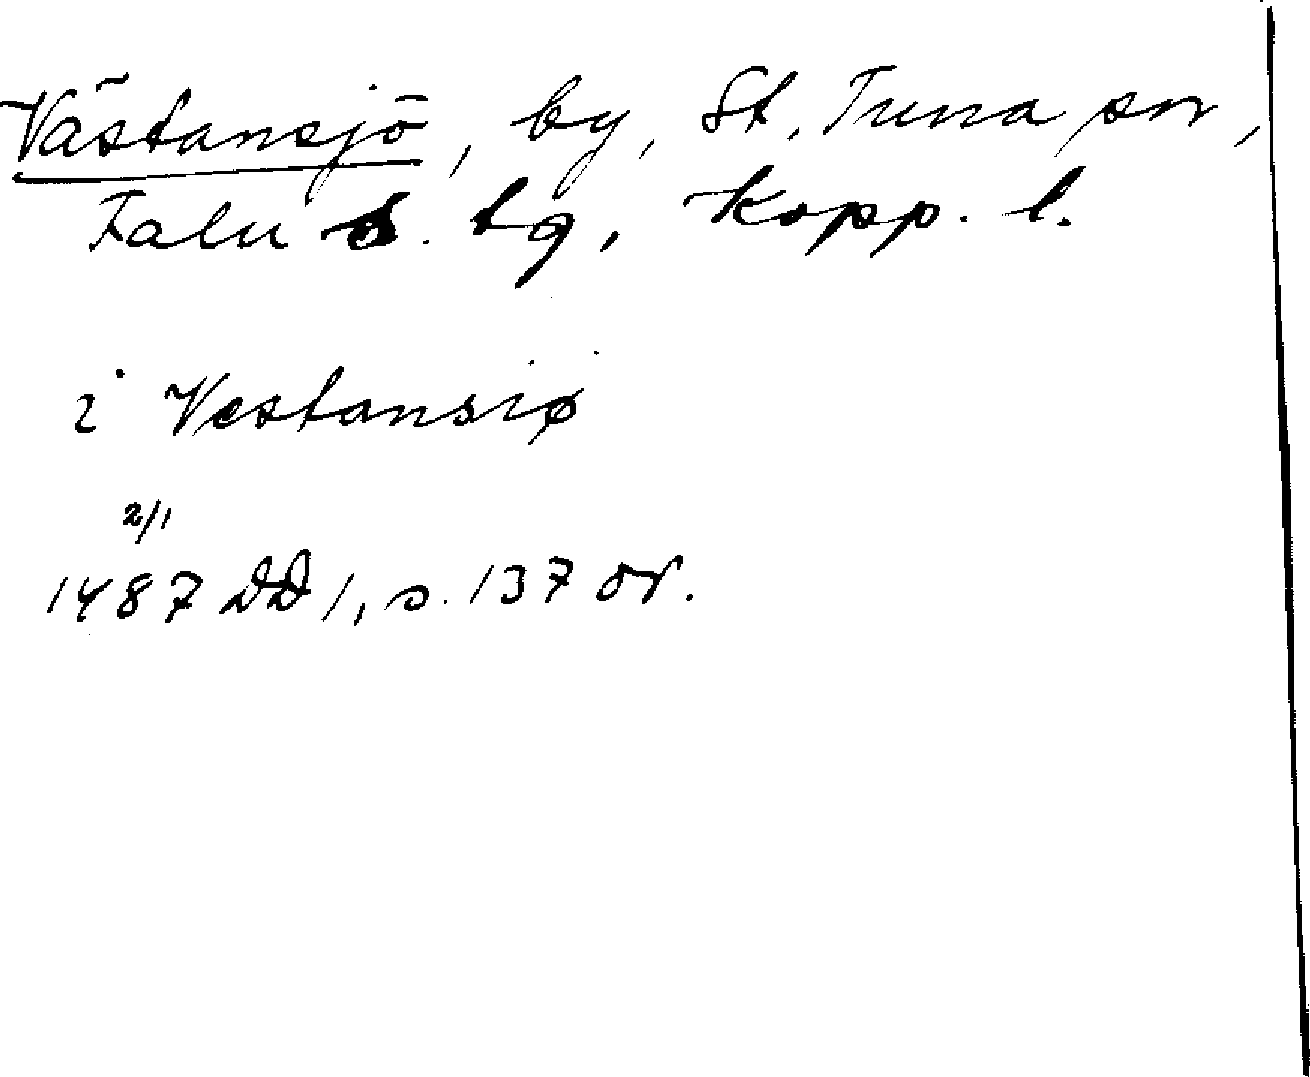 Västansjö, by, St. Tuna sn,
Falu s. tg, Kopp. l.
i Vestansiø
2/1
1487 DD 1, s. 137 or.